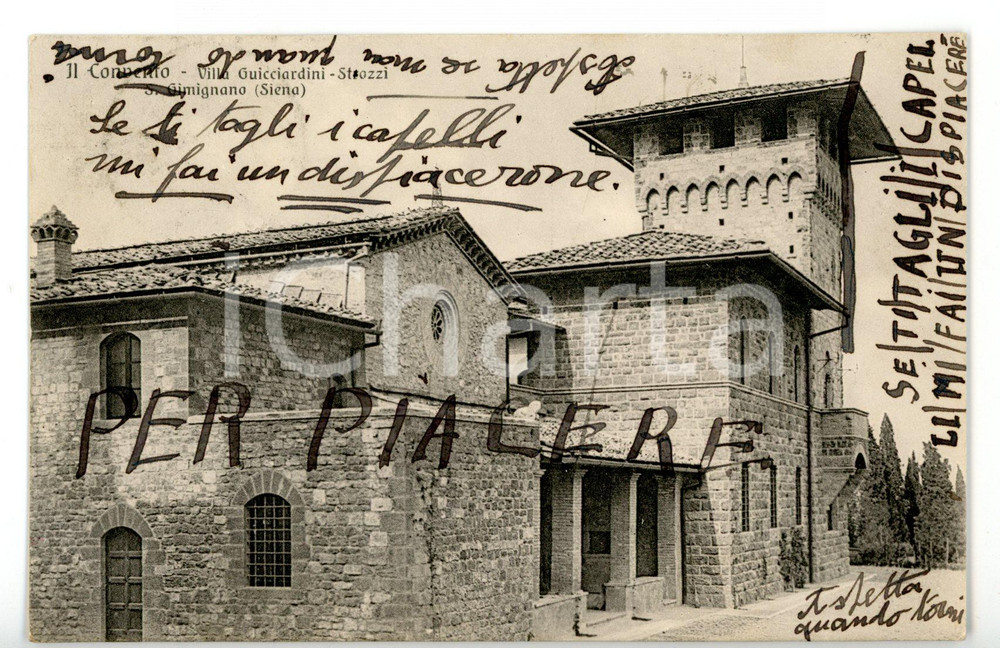 Il Convento - Villa Guicciardini-Strozzi
S. Gimignano (Siena)
Aspetta se mai quando torna
Se ti tagli i capelli
mi fai un dispiacerone.
SE/TI/TAGLI/I/CAPEL
LI/MI/FAI/UN/DISPIACERE
PER PIACERE
Aspetta
quando torni
iCharta